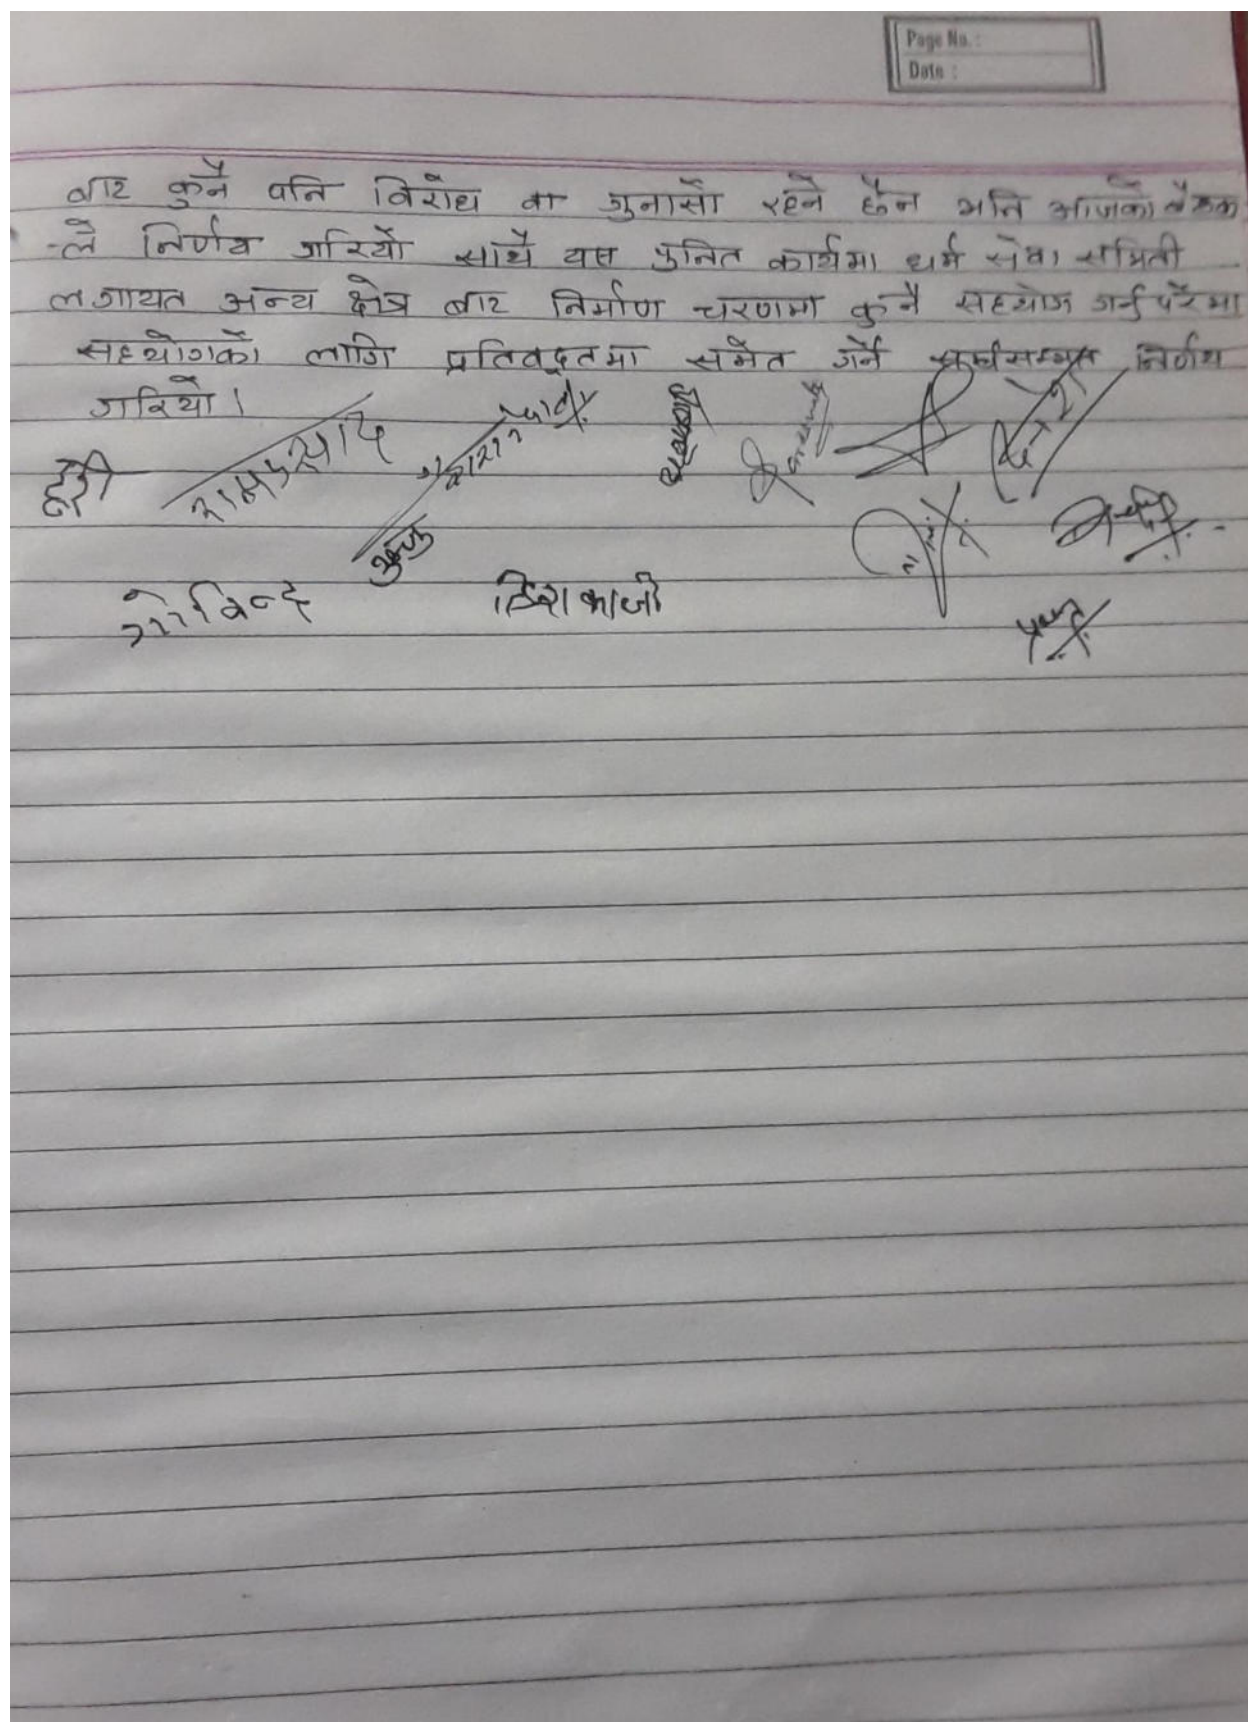 Page No. :
Date :
बाट कुनै पनि विरोध वा गुनासो रहने छैन भनि आजको बैठक
-ले निर्णय गरियो साथै यस पुनित कार्यमा धर्म सेवा समिती
लगायत अन्य क्षेत्र बाट निर्माण चरणमा कुनै सहयोग गर्नु परेमा
सहयोगको लागि प्रतिवद्दतमा समेत गर्ने सर्वसम्मत निर्णय
गरियो।
हरी रामप्रसाद
गोविन्द